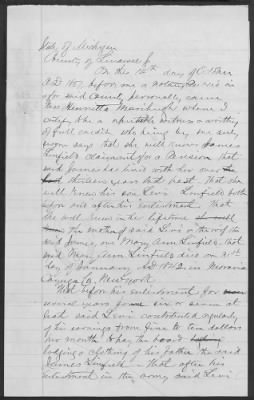 State of Michigan
County of Lenawee }
On the 12th day of October
A.D. 188 before me a Notary Public in
& for said County, personally came
Mrs. Henrietta whom I
certify to be a reputable witness & worthy
of full credit who being by me duly
sworn says that she well knew James
Linfield claimant for a Pension that
said James has lived with her over the
thirteen years last past, that she
well knew his son Levi Linfield both
before and after his enlistment. that
She well knew in her lifetime
the mother of said Levi & the wife of the
said James, one Mary Ann Linfield. that
said Mary Ann Linfield died on 21st
day of January A.D. 1842. in Moravia
Cayuga Co. New York.
That before his enlistment, for
several years for six or seven at
least said Levi contributed regularly
of his earnings from five to ten dollars
per month to pay the board
lodging & clothing of his father the said
James Linfield — that after his
enlistment in the army said Levi